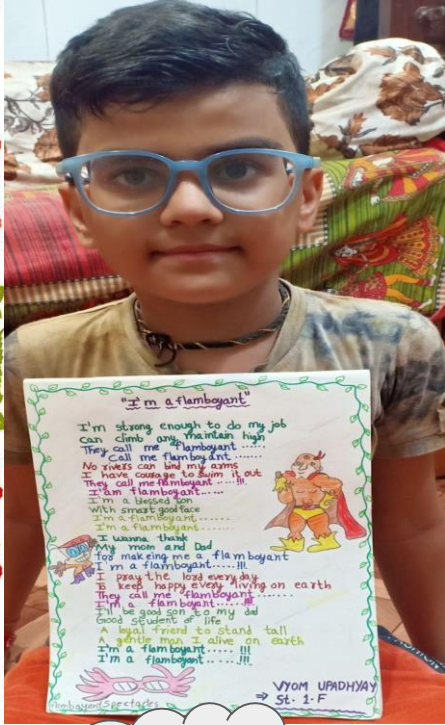 "I'm a flamboyant"
I'm strong enough to do my job
Can climb any maintain high
They call me flamboyant ......
Call me flamboyant ......
No rivers can bind my arms
I have courage to swim it out
They call me flamboyant .....!!!
I'am flamboyant.....
I'm a blessed son
With smart good face
I'm a flamboyant ......
I'm a flamboyant ......
I wanna thank
My mom and Dad
for makeing me a flamboyant
I'm a flamboyant .....!!!
I pray the lord every day
To keep happy every living on earth
They call me flamboyant ......
I'm a flamboyant .....!!!
I'll be good son to my dad
Good student of life
A loyal friend to stand tall
A gentle man I alive on earth
I'm a flamboyant ..... !!!
I'm a flamboyant ..... !!!
flamboyant Spectacles
VYOM UPADHYAY
⇒ St. 1-F